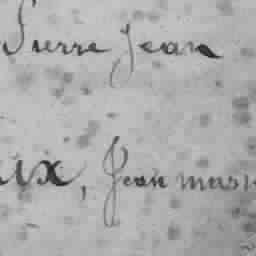 Pierre Jean
ux, Jean mas